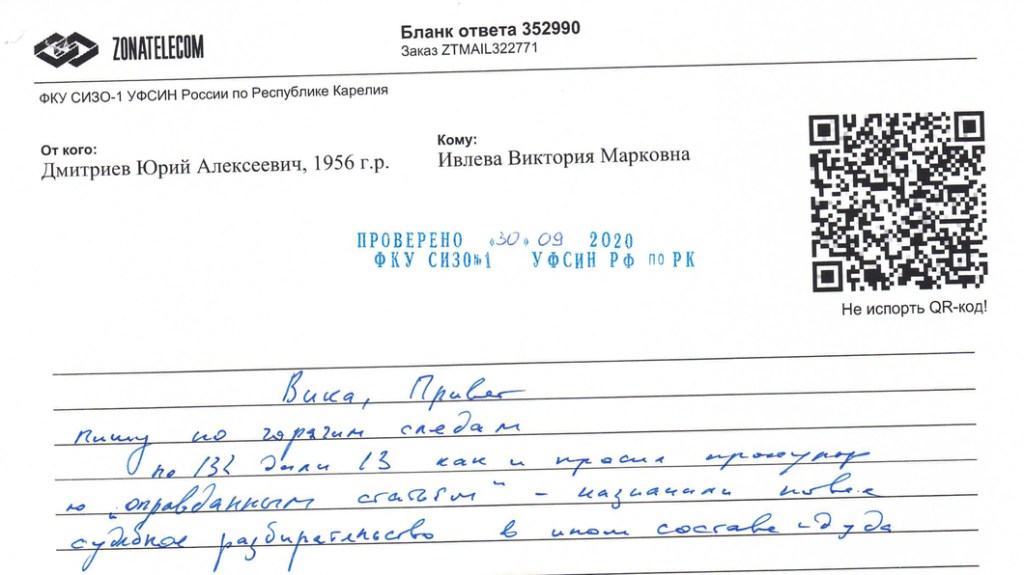 ZONATELECOM
Бланк ответа 352990
Заказ ZTMAIL322771
ФКУ СИЗО-1 УФСИН России по Республике Карелия
От кого:
Дмитриев Юрий Алексеевич, 1956 г.р.
Кому:
Ивлева Виктория Марковна
ПРОВЕРЕНО «30» 09 2020
ФКУ СИЗО№1 УФСИН РФ по РК
Не испорть QR-код!
Вика, Привет
пишу по горячим следам
по 132 дали 13 как и просил прокурор
"оправданным статьям" - назначили новое
судебное разбирательство в ином составе суда